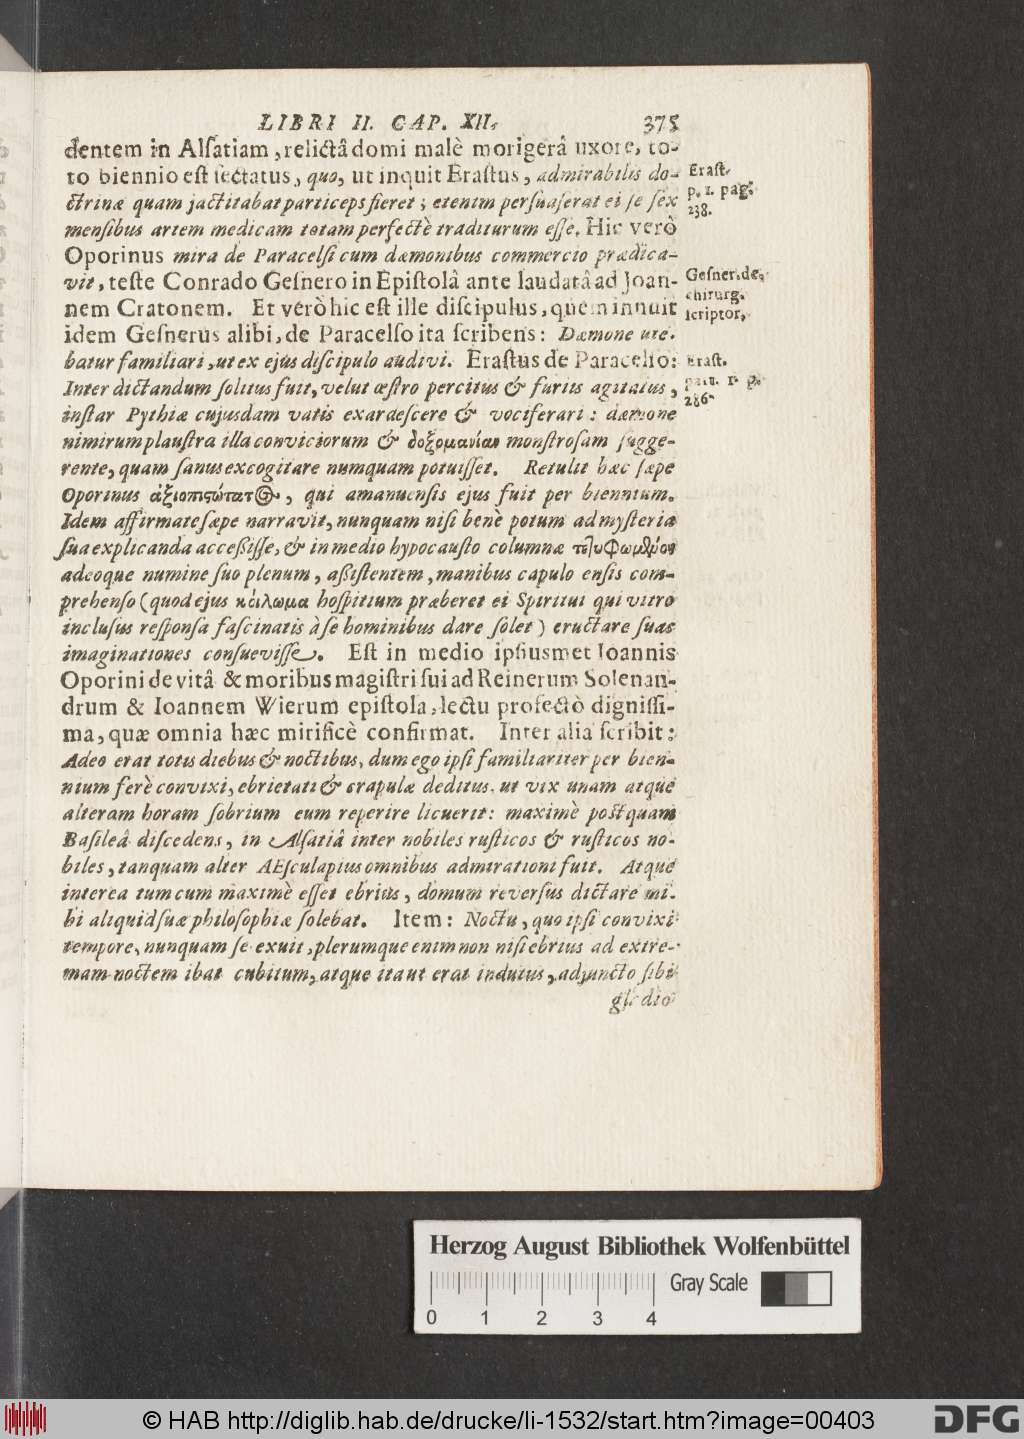 LIBRI II. CAP. XII. 375
dentem in Alſatiam, relictâ domi malè morigerâ uxore, to-
to biennio eſt ſectatus, quo, ut inquit Eraſtus, admirabilis do-
ctrinæ quam jactitabat particeps fieret; etenim perſuaſerat ei ſe ſex
menſibus artem medicam totam perfectè traditurum eſſe. Hic verò
Oporinus mira de Paracelſi cum dæmonibus commercio prædica-
vit, teſte Conrado Geſnero in Epiſtolâ ante laudatâ ad Joan-
nem Cratonem. Et verò hic eſt ille diſcipulus, quem innuit
idem Geſnerus alibi, de Paracelſo ita ſcribens: Dæmone ute-
batur familiari, ut ex ejus diſcipulo audivi. Eraſtus de Paracelſo:
Inter dictandum ſolitus fuit, velut œſtro percitus & furiis agitatus,
inſtar Pythiæ cujusdam vatis exardeſcere & vociferari: dæmone
nimirum plauſtra illa conviciorum & δοξομανίαν monſtroſam ſugge-
rente, quam ſanus excogitare numquam potuiſſet. Retulit hæc ſæpe
Oporinus ἀξιοπιστώτατος, qui amanuenſis ejus fuit per biennium.
Idem affirmate ſæpe narravit, nunquam niſi benè potum ad myſteria
ſua explicanda acceſſiſſe, & in medio hypocauſto columnæ τετυφωμένον
adeoque numine ſuo plenum, aſſiſtentem, manibus capulo enſis com-
prehenſo (quod ejus κοίλωμα hoſpitium præberet ei Spiritui qui vitro
incluſus reſponſa faſcinatis à ſe hominibus dare ſolet) eructare ſuas
imaginationes conſueviſſe. Eſt in medio ipſiusmet Ioannis
Oporini de vitâ & moribus magiſtri ſui ad Reinerum Solenan-
drum & Ioannem Wierum epiſtola, lectu profectò digniſſi-
ma, quæ omnia hæc mirificè confirmat. Inter alia ſcribit:
Adeo erat totis diebus & noctibus, dum ego ipſi familiariter per bien-
nium ferè convixi, ebrietati & crapulæ deditus, ut vix unam atque
alteram horam ſobrium eum reperire licuerit: maximè poſtquam
Baſileâ diſcedens, in Alſatiâ inter nobiles ruſticos & ruſticos no-
biles, tanquam alter AEſculapius omnibus admirationi fuit. Atque
interea tum cum maximè eſſet ebrius, domum reverſus dictare mi-
hi aliquid ſuæ philoſophiæ ſolebat. Item: Noctu, quo ipſi convixi
tempore, nunquam ſe exuit, plerumque enim non niſi ebrius ad extre-
mam noctem ibat cubitum, atque ita ut erat indutus, adjuncto ſibi
gladio
Eraſt.
p. 1. pag.
238.
Geſner. de
chirurg.
ſcriptor.
Eraſt.
part. 1. p.
286.
Herzog August Bibliothek Wolfenbüttel
Gray Scale
0 1 2 3 4
© HAB http://diglib.hab.de/drucke/li-1532/start.htm?image=00403
DFG